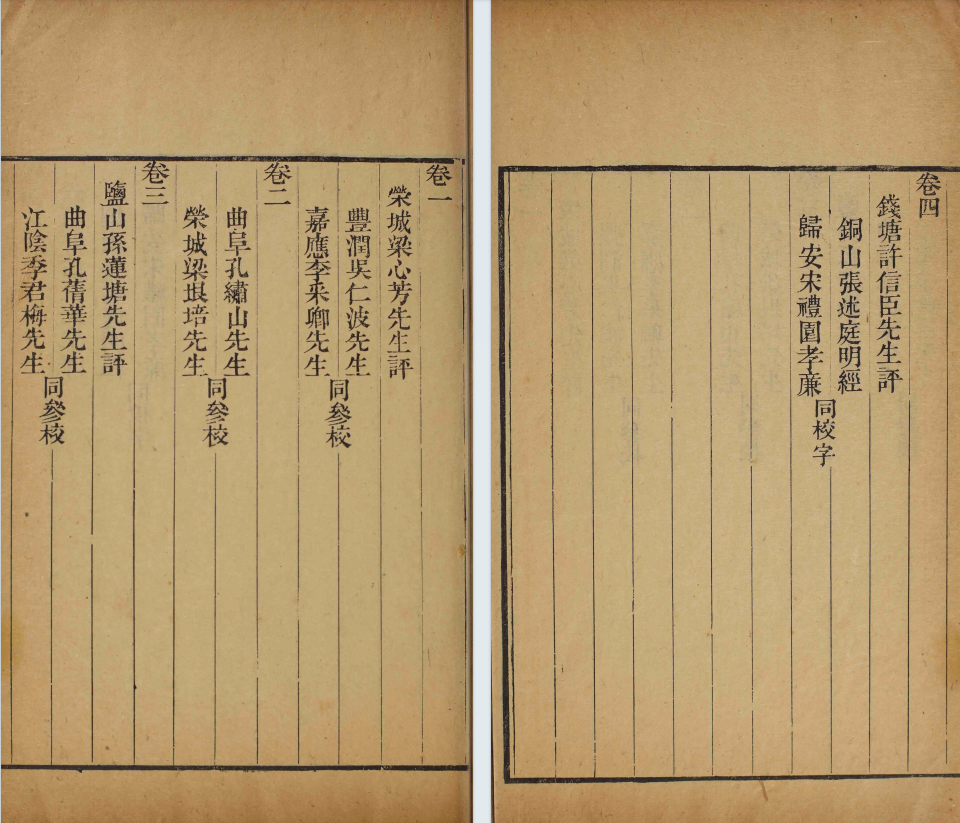 卷一
榮城梁心芳先生評
豐潤吳仁波先生
嘉應李采卿先生
同參校
卷二
曲阜孔繡山先生
榮城梁垠培先生
同參校
卷三
鹽山孫蓮塘先生評
曲阜孔蒨華先生
江陰季君梅先生
同參校
卷四
錢塘許信臣先生評
銅山張述庭明經
歸安宋禮園孝廉
同校字